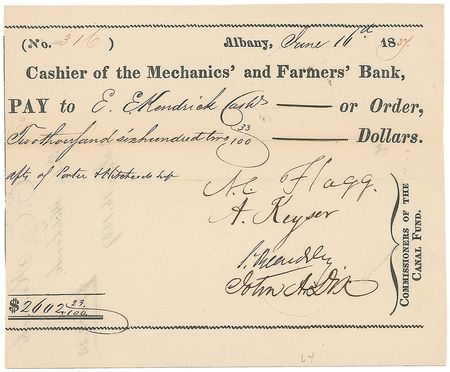 (No. 316) Albany, June 16th 1837.
Cashier of the Mechanics' and Farmers' Bank,
PAY to E. E Kendrick Cashr or Order,
Two thousand six hundred two 33/100 Dollars.
of Porter &
A. C. Flagg.
A. Keyser
John A. Dix
COMMISSIONERS OF THE CANAL FUND.
$2602 23/100
64